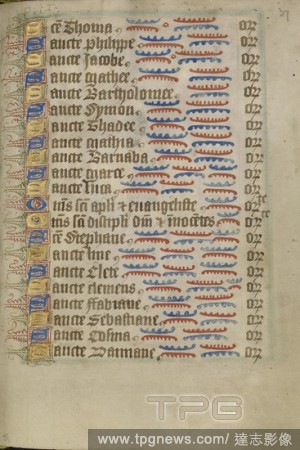 ce Thoma or
ancte philippe or
ancte Jacobe or
ancte mathee or
ancte Bartholomee or
ancte Symon or
ancte Thadee or
ancte mathia or
ancte Barnaba or
ancte marce or
ancte luca or
ms sci apli & euangeliste or
ms sci discipli dni & inocetes or
ce Stephane or
ancte line or
ancte Clete or
ancte clemens or
ancte ffabiane or
ancte Sebastiane or
ancte Cosma or
ancte Damiane or
TPG
www.tpgnews.com / 達志影像